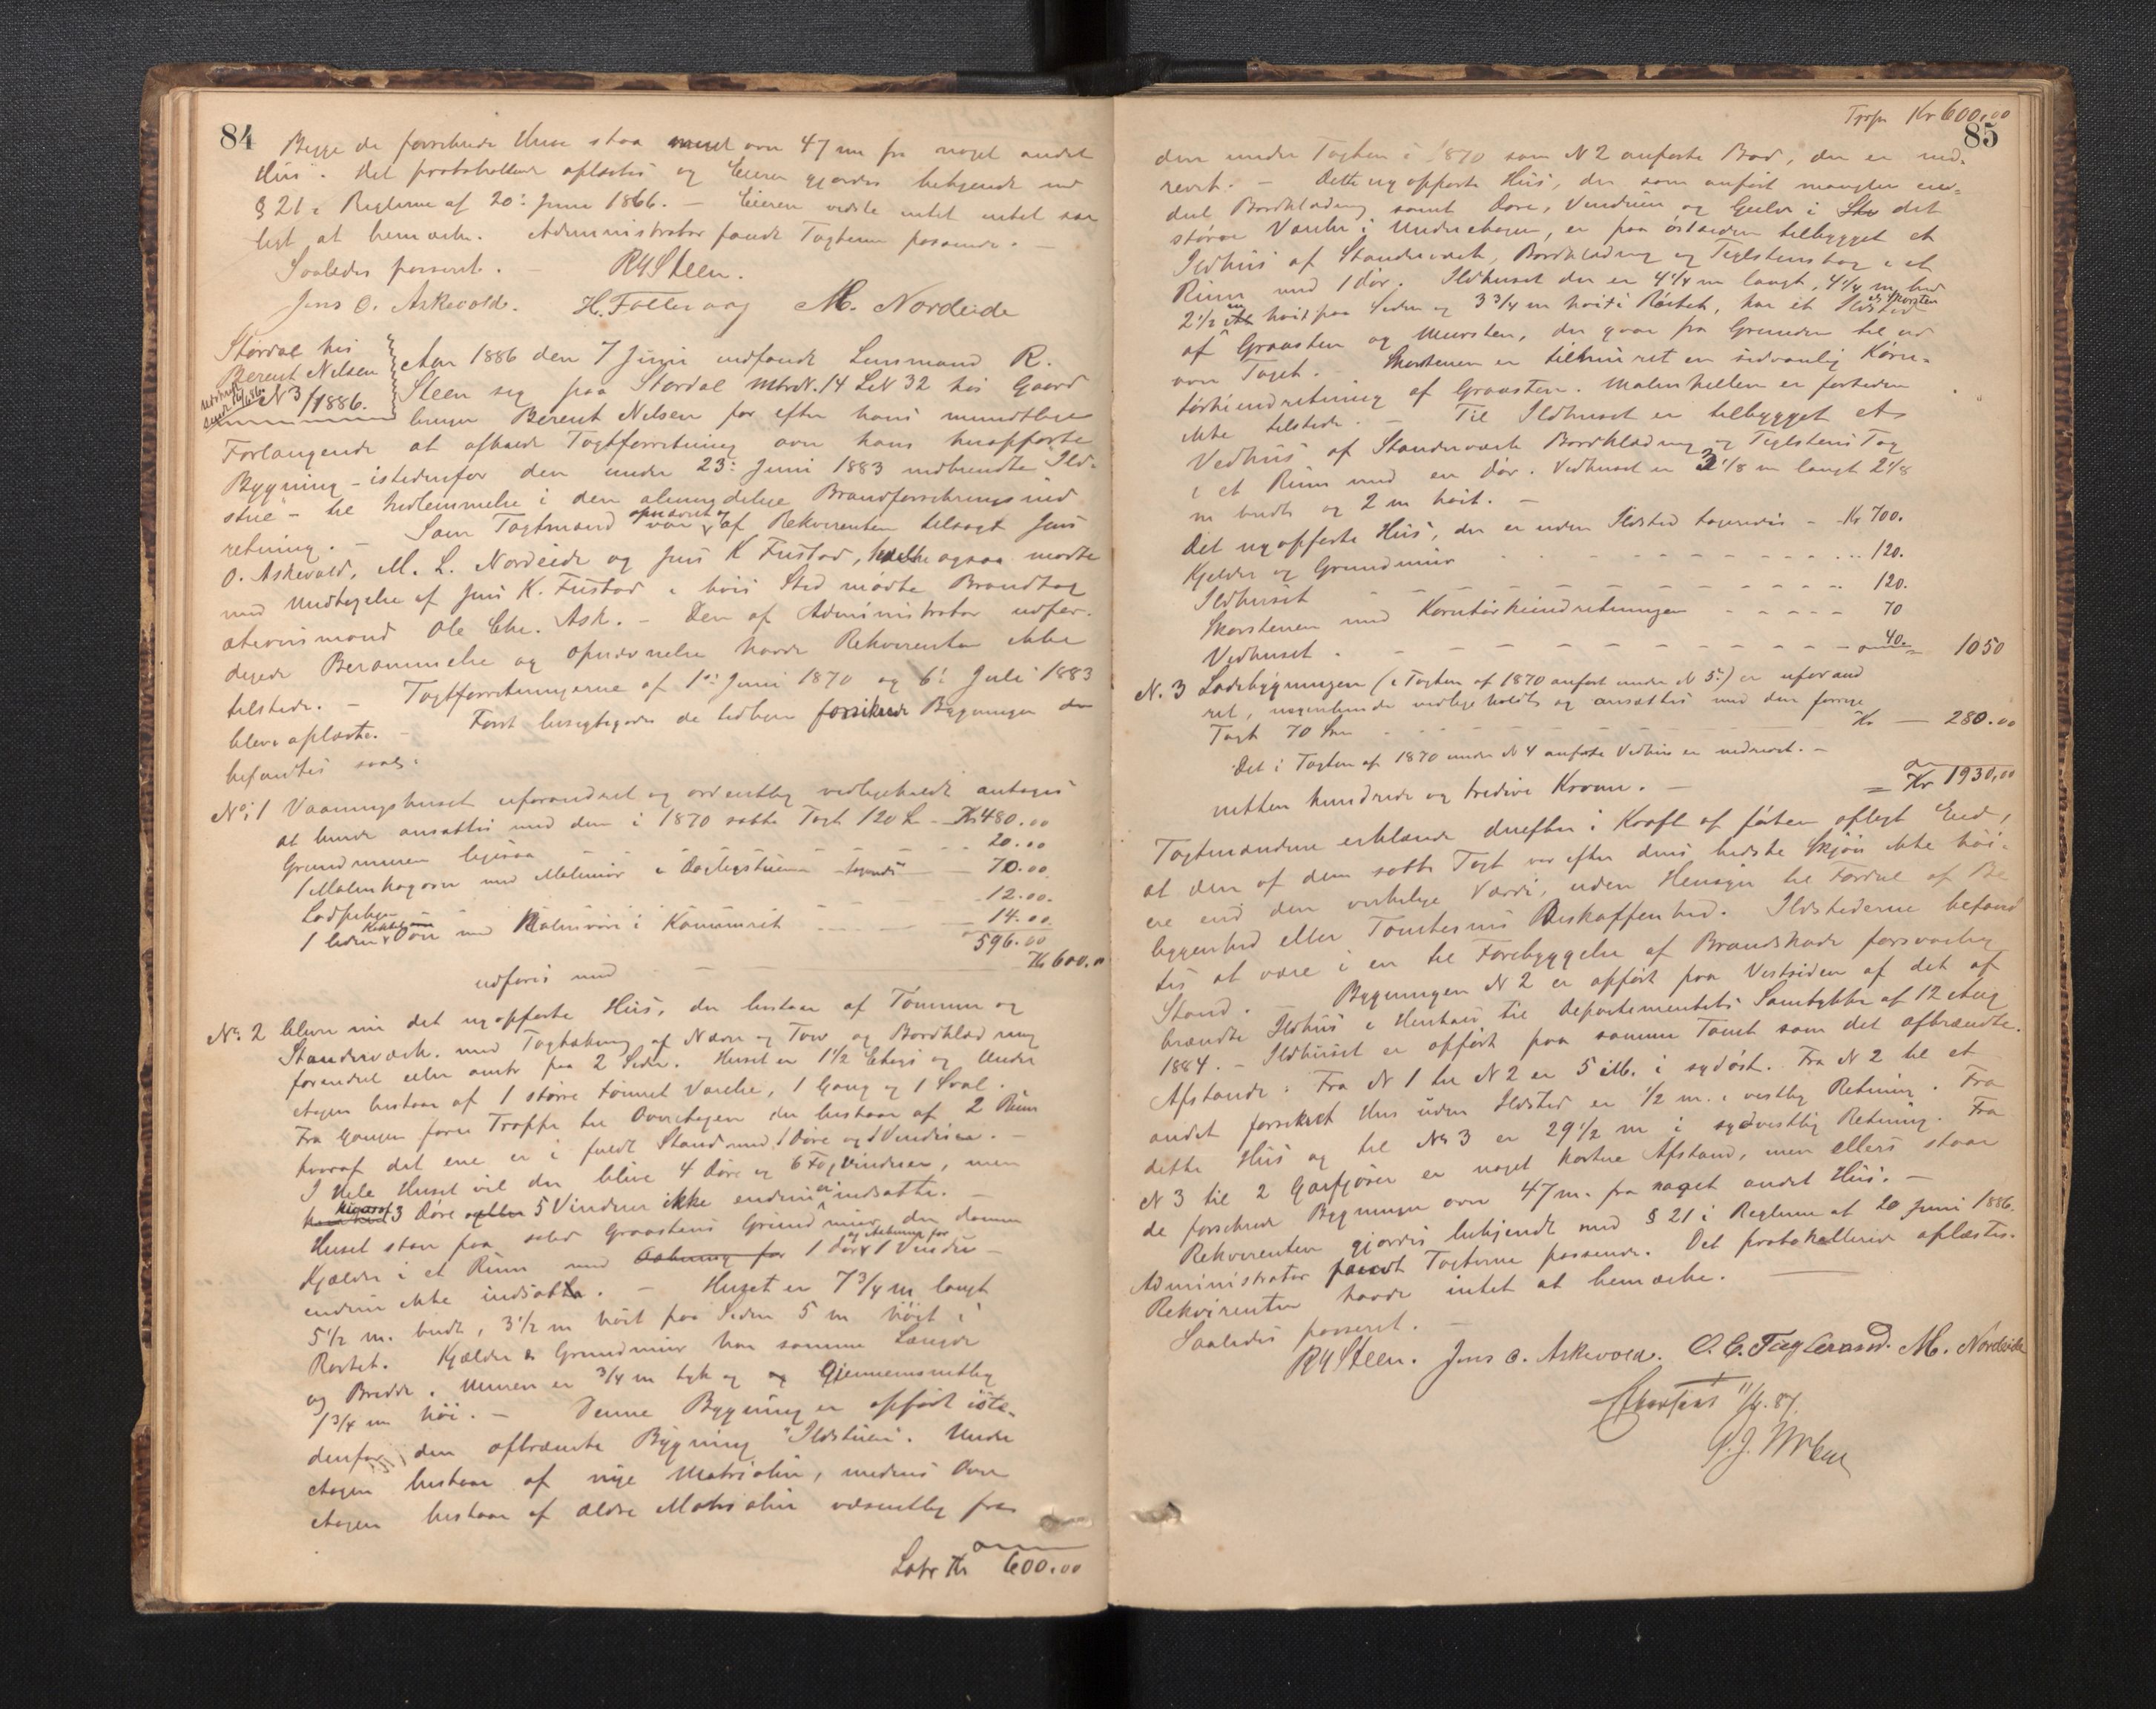 84
Begge de forsikrede Huse staa over 47 m fra noget andet
Hus. Det protokollerede oplæstes og Eieren gjordes bekjendt med
§ 21 i Reglerne af 20: Juni 1866. – Eieren vidste intet intet sær
ligt at bemærke. Administrator fandt Taxterne passende. –
Saaledes passeret. – RHSteen.
Jens O. Askevold. H. Folleraag M. Nordeide
Stordal hos
Berent Nelsen
N 3/1886.
Aar 1886 den 7 Juni indfandt Lensmand R.
Steen sig paa Stordal Mtr.N. 14 L.N 32 hos Gaard
bruger Berent Nelsen for efter hans mundtlige
Forlangende at afholde Taxtforretning over hans nyopførte
Bygning – istedenfor den under 23: Juni 1883 nedbrændte Ild-
stue – til Indlemmelse i den almindelige Brandforsikringsind
retning. – Som Taxtmænd var opnævnt og af Rekvirenten tilsagt Jens
O. Askevold, M. L. Nordeide og Jens K Fustad, hvilke ogsaa mødte
med Undtagelse af Jens K. Fustad i hvis Sted mødte Brandtax
ationsmand Ole Chr. Ask. – Den af Administrator udfær-
digede Berammelse og Opnævnelse havde Rekvirenten ikke
tilstede. – Taxtforretningerne af 1ste Juni 1870 og 6: Juli 1883
bleve oplæste. – Først besigtigedes de tidligere forsikrede Bygninger der
befandtes saal.
No. 1 Vaaningshuset uforandret og ordentlig vedligeholdt antages
at burde ansættes med den i 1870 satte Taxt 120 L – Kr 480.00
Grundmuren ligesaa – – – 20.00
1 Malmkagovn med Malmrør i Dagligstuen taxeredes – 70.00
Ladpiben 12.00.
1 liden Kakkelovn med Malmrør i Kammeret – – – 14.00
596.00
udføres med – – – Kr 600.00
No. 2 bliver nu det nyopførte Hus, der bestaar af Tømmer og
Standerværk med Tagtækning af Næver og Torv og Bordklædning
forendel eller omtr paa 2 Sider. Huset er 1½ Etages og Under
etagen bestaar af 1 større tømret Værelse, 1 Gang og 1 Sval.
Fra Gangen fører Trappe til Overetagen der bestaar af 2 Rum
hvoraf det ene er i fuld Stand med 1 Døre og 1 Vinduer. –
I Hele Huset vil der blive 4 Døre og 6 Fag Vinduer, men
hvoraf 3 Døre og 5 Vinduer ikke endnu er indsatte. –
Huset staar paa solid Graastens Grundmur der danner
Kjælder i et Rum med Aabning for 1 Dør og Aabning for 1 Vindu –
endnu ikke indsatte. – Huset er 7¾ m langt
5½ m. bredt, 3½ m høit paa Siden 5 m høit i
Røstet. Kjælder & Grundmur har samme Længde
og Bredde. Muren er ¾ m tyk og og Gjennemsnitlig
1¾ m høi. – Denne Bygning er opført iste-
denfor den afbrændte Bygning "Ildstuen". Under
etagen bestaar af nye Matrialier, medens Over
etagen bestaar af ældre Matrialier væsentlig fra
Latr Kr 600.00
85
Trspr Kr 600.00
den under Taxten i 1870 som N 2 anførte Bod, der er ned-
revet. – Dette nyopførte Hus, der som anført mangler en-
del Bordklædning samt Døre, Vinduer og Gulv i Stu det
større Værelse i Underetagen, er paa østsiden tilbygget et
Ildhus af Standerværk, Bordklædning og Teglstenstag i et
Rum med 1 Dør. Ildhuset der er 4¼ m langt, 4¼ m bred
2½ m høit paa Siden og 3¾ m høit i Røstet, har et Ildsted og Skorsten
af Graasten og Mursten, der gaar fra Grunden til ud
over Taget. – Skorstenen er tilmuret en sedvanlig Korn-
tørkeindretning af Graasten. Malmhellen er fortiden
ikke tilstede. – Til Ildhuset er tilbygget et
Vedhus af Standerværk Bordklædning og Teglstens Tag
i et Rum med en Dør. Vedhuset er 3 1/8 m langt 2 1/8
m bredt og 2 m høit. –
Det nyopførte Hus, der er uden Ildsted taxeredes – Kr 700.
Kjelder og Grundmur – – – 120.
Ildhuset – – – 120.
Skorstenen med Korntørkeindretningen – – – 70
Vedhuset – – – 40 1050
N. 3 Ladebygningen (i Taxten af 1870 anført under N 5.) er uforand
ret, nogenlunde vedligeholdt og ansættes med den forrige
Taxt 70 Spd – – – Kr – 280.00
Det i Taxten af 1870 under N 4 anførte Vedhus er nedrevet. –
nitten hundrede og tredive Kroner. – = Kr 1930,00
Taxtmændene erklærede derefter i Kraft af før aflagt Eed,
at den af dem satte Taxt var efter deres bedste Skjøn ikke høi-
ere end den virkelige Værdi, uden Hensyn til Fordel af Be
liggenhed eller Tomternes Beskaffenhed. Ildstederne befand
tes at være i en til Forebyggelse af Brandskade forsvarlig
Stand. – Bygningen N 2 er opført paa Vestsiden af det af
brændte Ildhus i Henhold til Departementets Samtykke af 12 Aug
1884. – Ildhuset er opført paa samme Tomt som det afbrændte.
Afstande: Fra N 1 til N 2 er 5 m. i sydøst. Fra N 2 til et
andet forsikret Hus uden Ildsted er ½ m. i vestlig Retning. Fra
dette Hus og til No 3 er 29½ m i sydvestlig Retning. Fra
N 3 til 2 er noget kortere Afstand, men ellers staar
de forsikrede Bygninger over 47 m. fra noget andet Hus. –
Rekvirenten gjordes bekjendt med § 21 i Reglerne af 20 Juni 1886.
Administrator fandt Taxterne passende. Det protokollerede oplæstes.
Rekvirenten havde intet at bemærke.
Saaledes passeret. –
RHSteen. Jens O. Askevold. M. Nordeide
11/4.87.